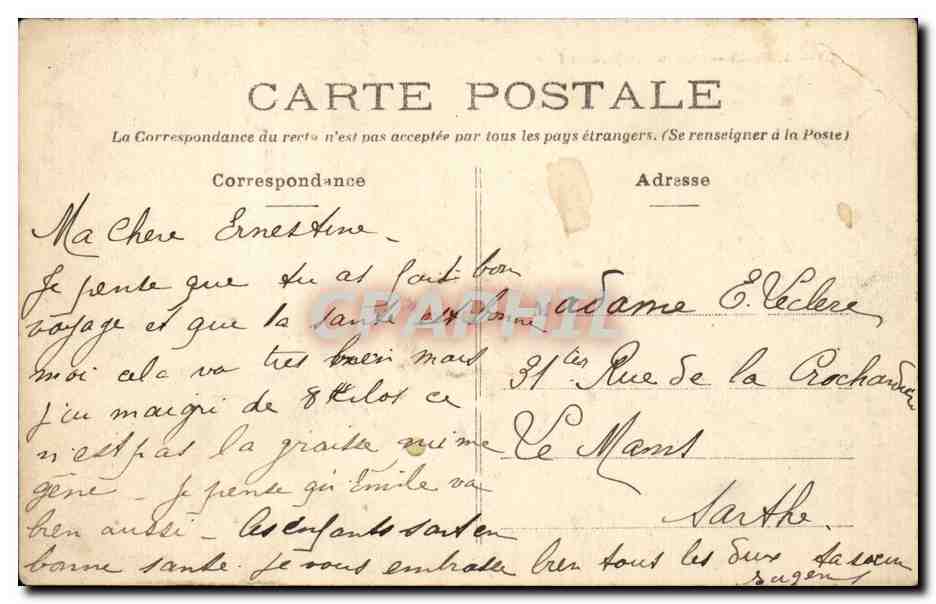 CARTE POSTALE
La Correspondance du recto n'est pas acceptée par tous les pays étrangers. (Se renseigner à la Poste)
Correspondance
Ma Chere Ernestine -
Je pense que tu as fait bon
voyage et que ta santé est bonne
moi cela va tres bien mais
j'ai maigri de 8 Kilos ce
n'est pas la graisse qui me
gêne - Je pense qu'Emile va
bien aussi - les enfants sont en
bonne santé. Je vous embrasse bien tous les deux ta soeur
Adresse
Madame E. Leclere
31 ter Rue de la Crochardiere
Le Mans
Sarthe.
CRAPHIL